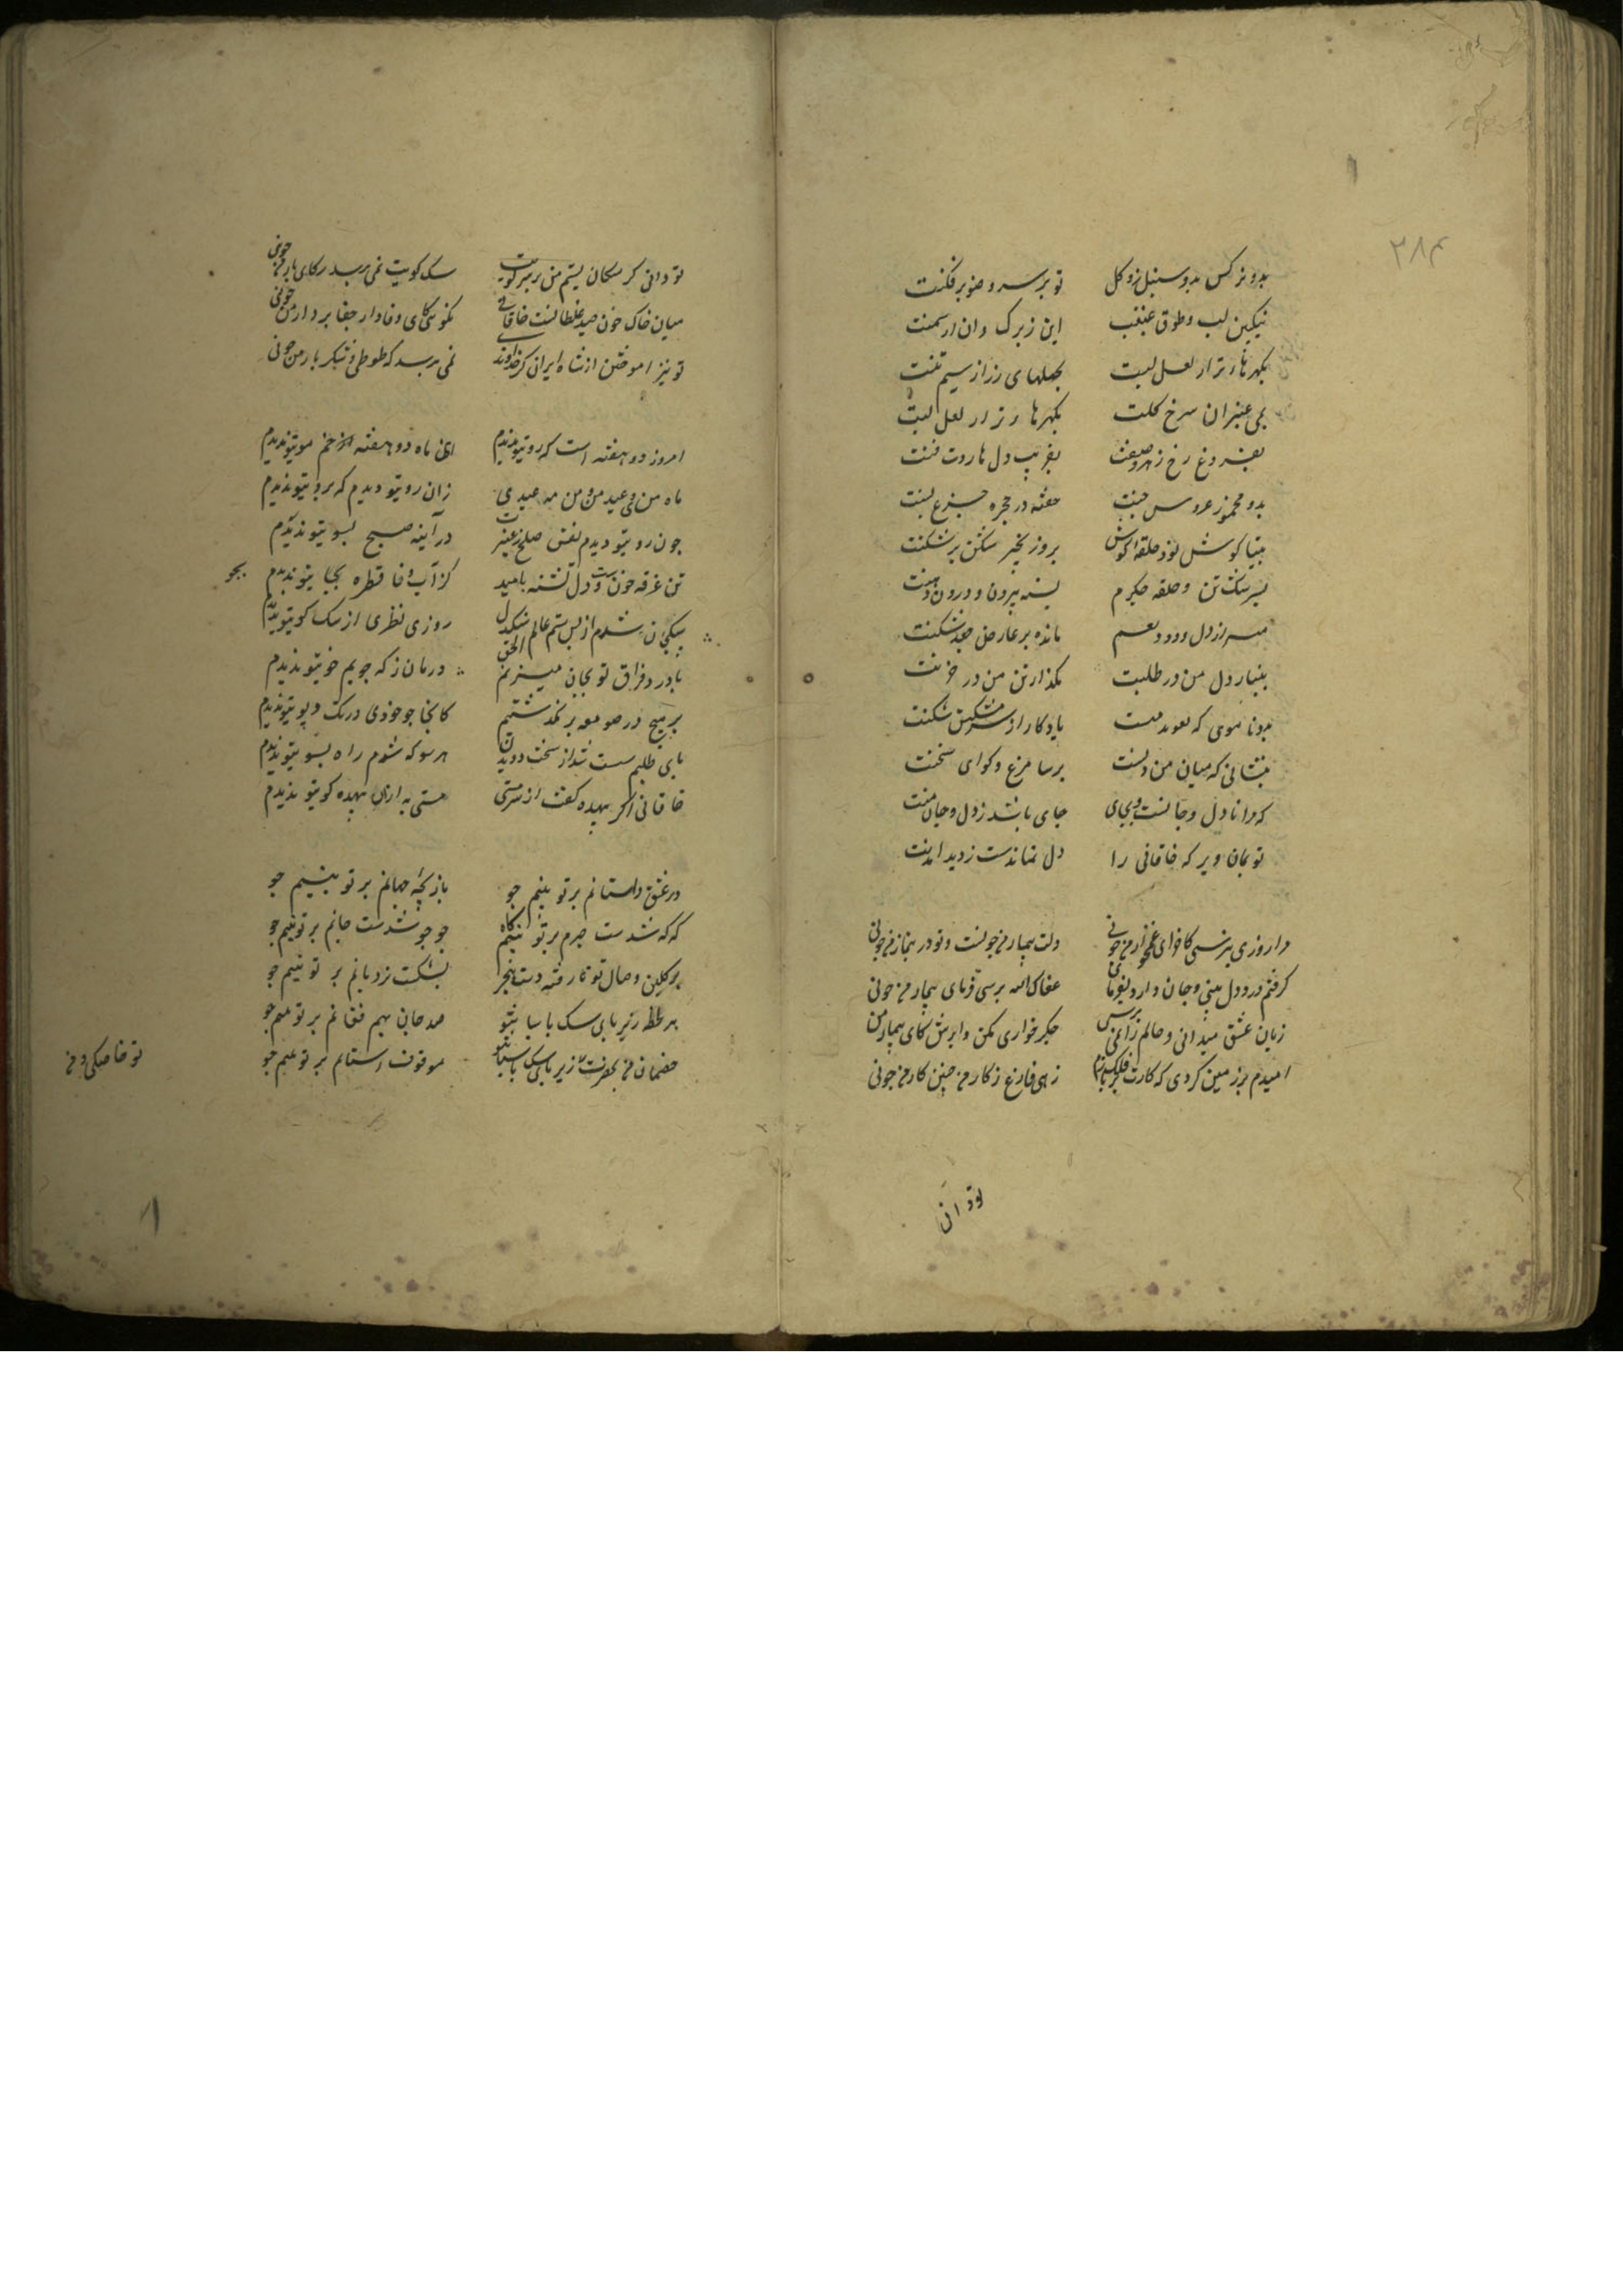 ۲۸۴
بدو نرکس بدو سنبل بدو کل تو بر سرو صنوبر فکنت
نکین لب وطوق غبغب این ز برک وان از سمنت
بکهرهای تر از لعل لبت بحلهای زر از سیم تنت
بمی عنبران سرخ کلت بکهرها وتر از لعل لبت
بفروغ رخ زهره صفت بفریب دل هاروت فنت
بدو مخمور عروس حبشت خفته در حجره جزع یمنت
بتیا کوشش تو و حلقه کوش بدو زنجیر شکن بر شکنت
بسرشک تن وحلقه جکرم بسته بیرون و درون دهنت
مانده بر عارض جعد شکنت
بنیاز دل من در طلبت بکداز تن من در حزنت
بدو تا موی که تعویذ منست یادکار از سر مشکین شکنت
بنشانی که میان من وتست برسا مرغ وکوای سخنت
که مرا تا دل وجانست بجای جای باشد ز دل وجان منت
تو بمان دیر که خاقانی را دل نماندست ز دیر امدنت
مرا روزی نپرسی کاخر ای غمخوار من جونی دلت بیمار من جونست وتو در بیمار من جونی
کرفتم درد دل بینی وجان دارو نفرمای عفاک الله بپرسی فرمای بیمار من جونی
زبان عشق میدانی وحالم زان نمی پرسی جکر خواری مکن وا پرس کای بیمار من
امیدم بر زمین کردی که کارت بر فلک سازم زهی فارغ ز کار من جنین کار من جونی
تو دانی
تو دانی کر سکان نیستم من بر سر کویت سک کویت نمی پرسد که ای یار من جونی
میان خاک خون صید غلطانست خاقانی نکوئی کای وفادار جفا بردار من جونی
تو نیز اموختن از شاه ایران کز خداوند نمی پرسد که طوطی شکر بار من جونی
امروز دو هفته است که رو تیو ندیدم ای ماه دو هفته از خم مو تیو ندیدم
ماه من وعید من و من مه عیدی زان رو تیو دیدم که برو تیو ندیدم
جون رو تیو دیدم نفس صلح ز عنبر در آینه صبح بسو تیو ندیدم
تن غرقه خونست ودل تشنه بامید کز آب وفا قطره بجیا تیو ندیدم
بجو
روزی نظری از سک کو تیو ندیدم
با درد فراق تو بجان میزنم الحق درمان ز که جویم خو تیو ندیدم
بر هیچ در صومعه بر نکذشتیم کانجا جو خودی در تک و پو تیو ندیدم
پای طلبم سست شد از سخت دویدن هر سو که شدم راه بسو تیو ندیدم
خاقانی اکر بیهده کفت از سر مستی مستی به ازان بیهده کو تیو ندیدم
در عشق داستانم بر تو بنیم جو بازیجه جهانم بر تو بنیم جو
که که شدست جرم بر تو بنیم کاه جو جو شدست جانم بر تو بنیم جو
بر کلبن وصال تو نا رفته دست هجر بشکست نردبانم بر تو بنیم جو
هر لحظه زیر پای سک پاسبان تو صد جان بهم فشانم بر تو بنیم جو
خصمان من بحضرت تو زیر پای سک پاسبان تو موقوف استانم بر تو بنیم جو
تو خاصکی ومن